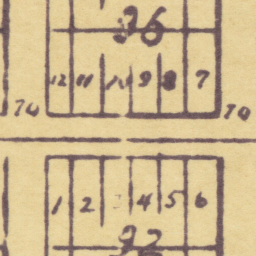 36
12 11 10 9 8 7
70 70
1 2 3 4 5 6